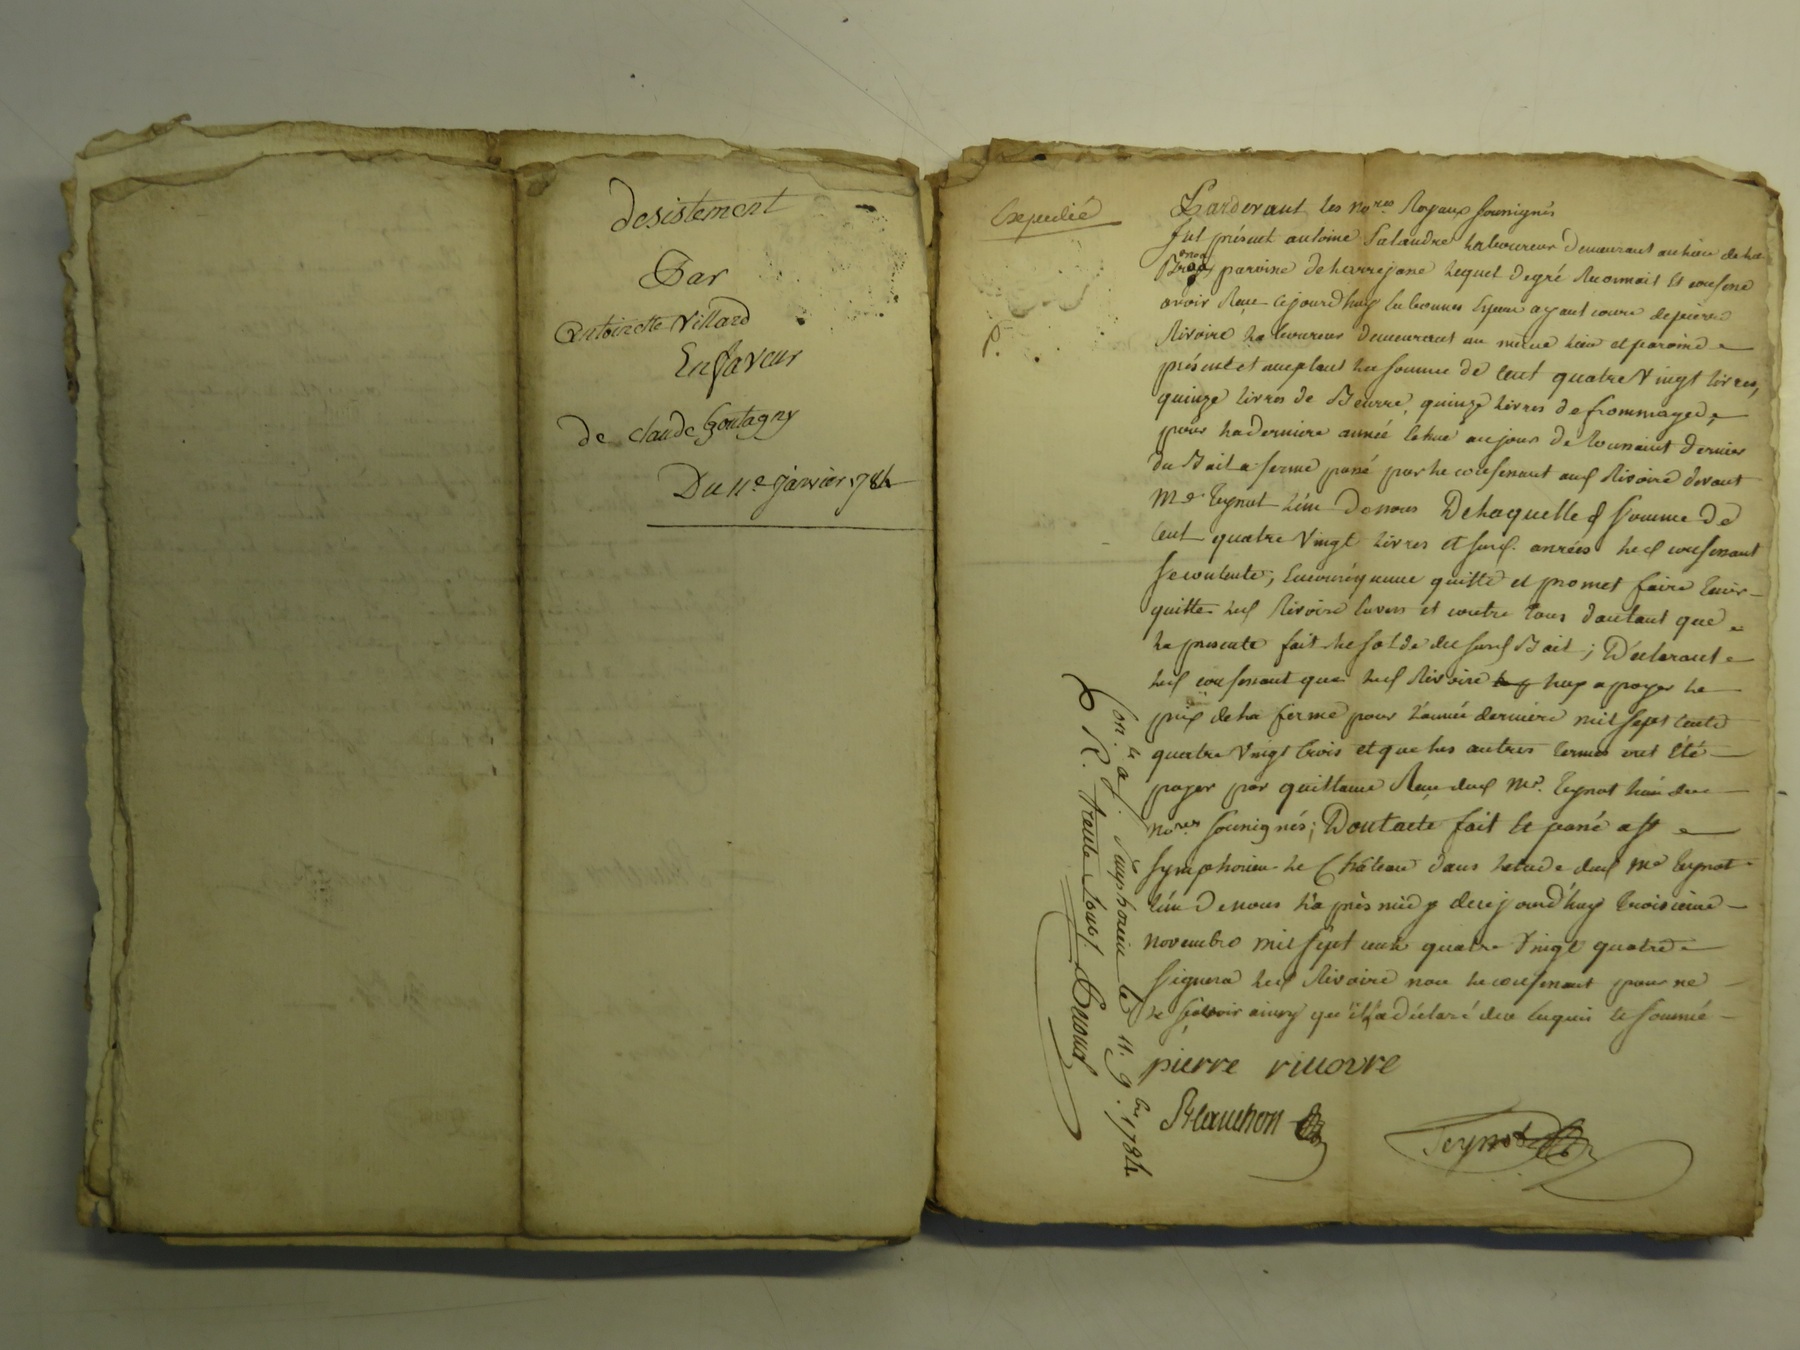 desistement
Par
antoinette Villard
En faveur
de claude Goutagny
Du 11e janvier 1784
Expedié
Pardevant les nores Royaux soussignés
fut présent antoine laboureur demeurant au lieu de la
paroisse de larrejasse lequel de gré Reconnait et confesse
avoir Reçu cejourd'huy en bonnes Especes ayant cours de pierre
Rivoire laboureur demeurant au même lieu et paroisse
présent et acceptant la somme de cent quatre Vingt livres,
quinze livres de Beurre, quinze livres de frommages,
pour la derniere année echue au jour de toussaint dernier
du Bail a ferme passé par le confessant aud Rivoire devant
Me teynot l'un de nous De laquelle somme de
cent quatre Vingt livres et susd. anrées led confessant
se contente, en quitte et promet faire tenir
quitte led Rivoire envers et contre tous d'autant que
la presente fait le solde du susd Bail ; Déclarant
led confessant que led Rivoire luy a payer le
prix de la ferme pour l'année derniere mil sept cents
quatre Vingt trois et que les autres termes ont été
payer par quittance Reçue dud Me. teynot l'un des
nores soussignés ; Dont acte fait et passé a st
symphorien le Château dans l'etude dud Me teynot
l'un de nous l'après midy de cejourd'huy troisieme
novembre mil sept cent quatre Vingt quatre
signera led Rivoire non le confessant pour ne
le sçavoir ainsy qu'il l'a déclaré de ce enquis et sommé
pierre riuoyre
Blanchon
Teynot
Con. le a st. simphorien le 11. 9. bre 1784
R. trente sous